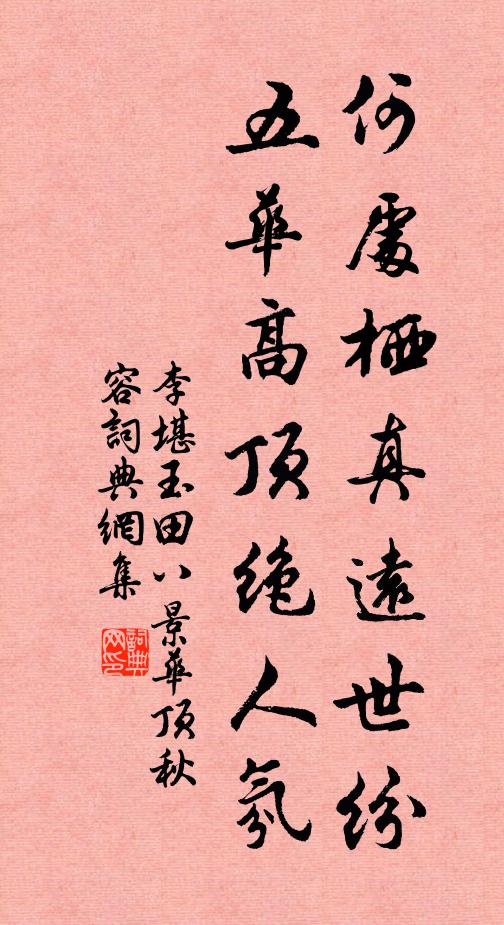 何處栖真遠世紛
五華高頂絶人氛
李堪玉田八景華頂秋
容詞典網集
詞典网印